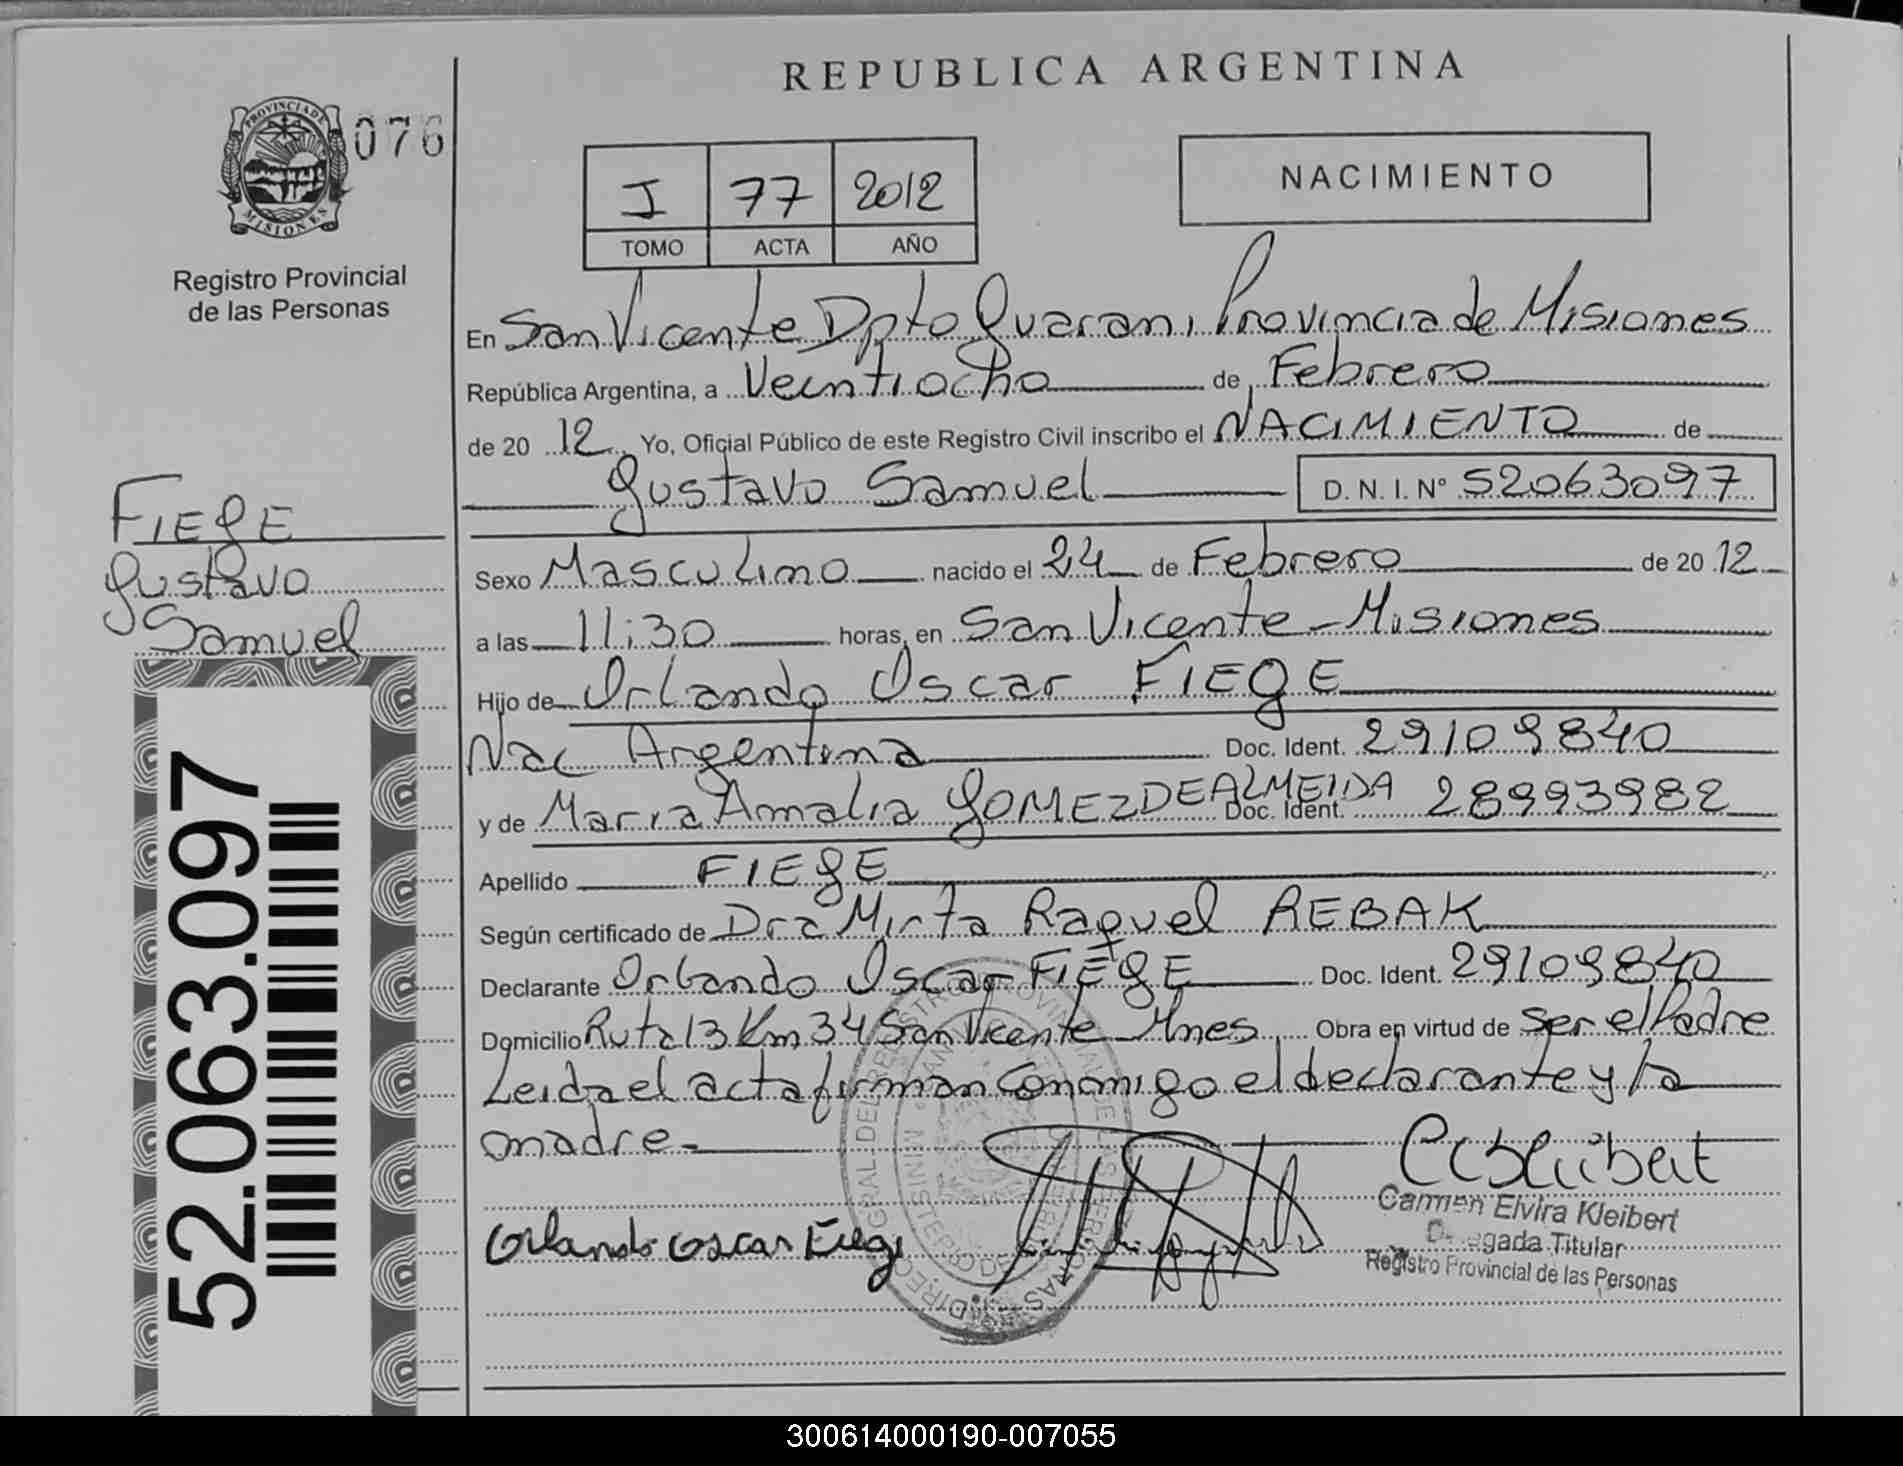 REPUBLICA ARGENTINA
PROVINCIA DE
MISIONES
076
Registro Provincial
de las Personas
I 77 2012
TOMO ACTA AÑO
NACIMIENTO
En San Vicente Dpto Guarani, Provincia de Misiones
República Argentina, a Veintiocho de Febrero
de 20 12 Yo, Oficial Público de este Registro Civil inscribo el NACIMIENTO de
Gustavo Samuel D. N. I. N° 52063097
FIEGE
Gustavo
Samuel
Sexo Masculino nacido el 24 de Febrero de 20 12
a las 11:30 horas, en San Vicente - Misiones
Hijo de Orlando Oscar FIEGE
Nac Argentina Doc. Ident. 29109840
y de Maria Amalia GOMEZ DE ALMEIDA Doc. Ident. 28993982
Apellido FIEGE
Según certificado de Dra Mirta Raquel REBAK
Declarante Orlando Oscar FIEGE Doc. Ident. 29109840
Domicilio Ruta 13 Km 34 San Vicente Mnes Obra en virtud de ser el Padre
Leida el acta firman conmigo el declarante y la
madre.
52.063.097
Orlando Oscar Fiege
Carmen Elvira Kleibert
Delegada Titular
Registro Provincial de las Personas
300614000190-007055